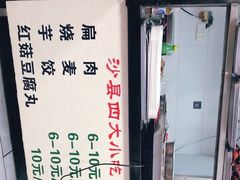 沙县四大小吃
扁肉 6-10元
烧麦 6-10元
芋饺 6-10元
红菇豆腐丸 10元